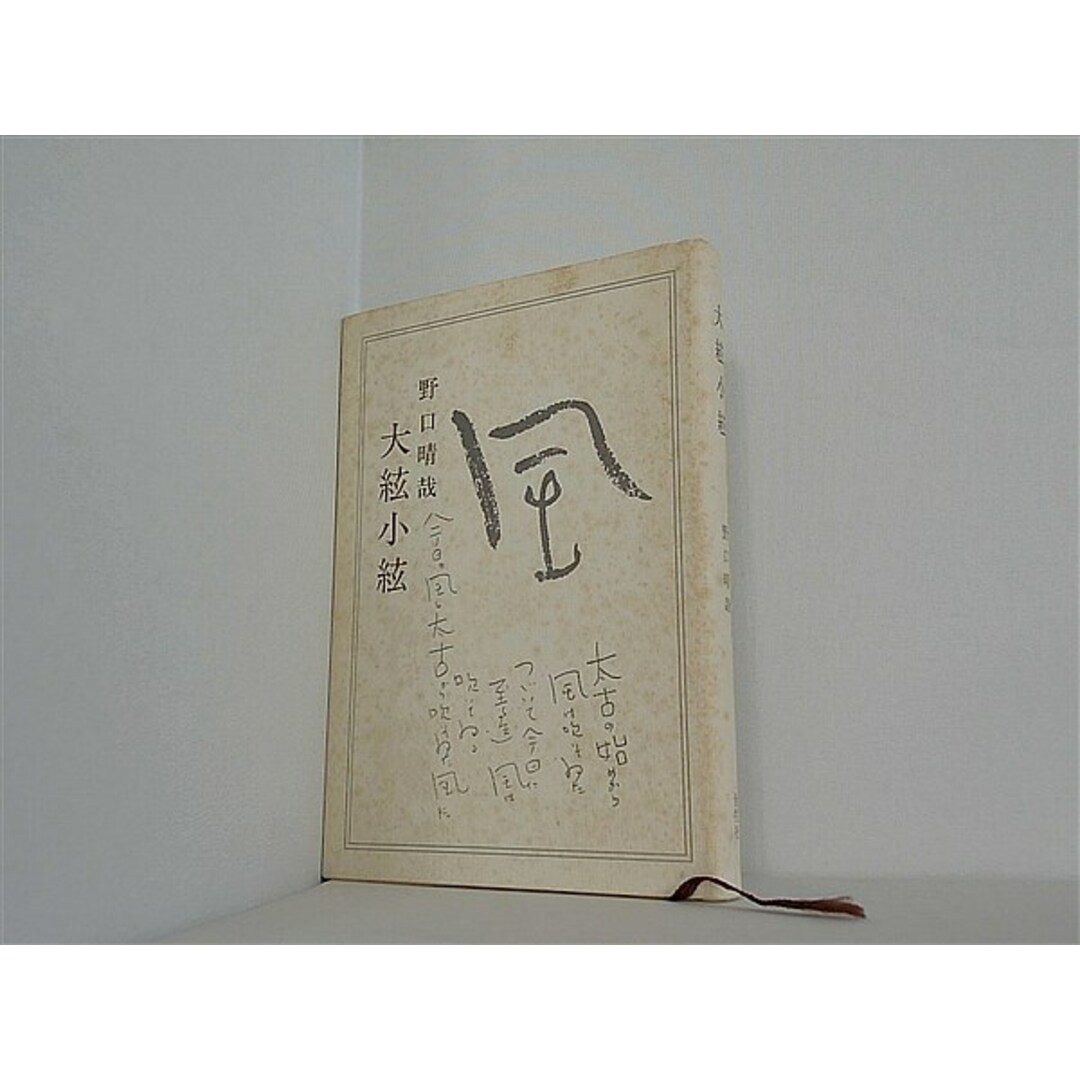 風
野口晴哉
大絃小絃
太古の始めから
風は吹いてゐた
つゞいて今日に
至る迄 風は
吹いてゐる
今日の風も太古から吹いてゐた風だ
大絃小絃
野口晴哉